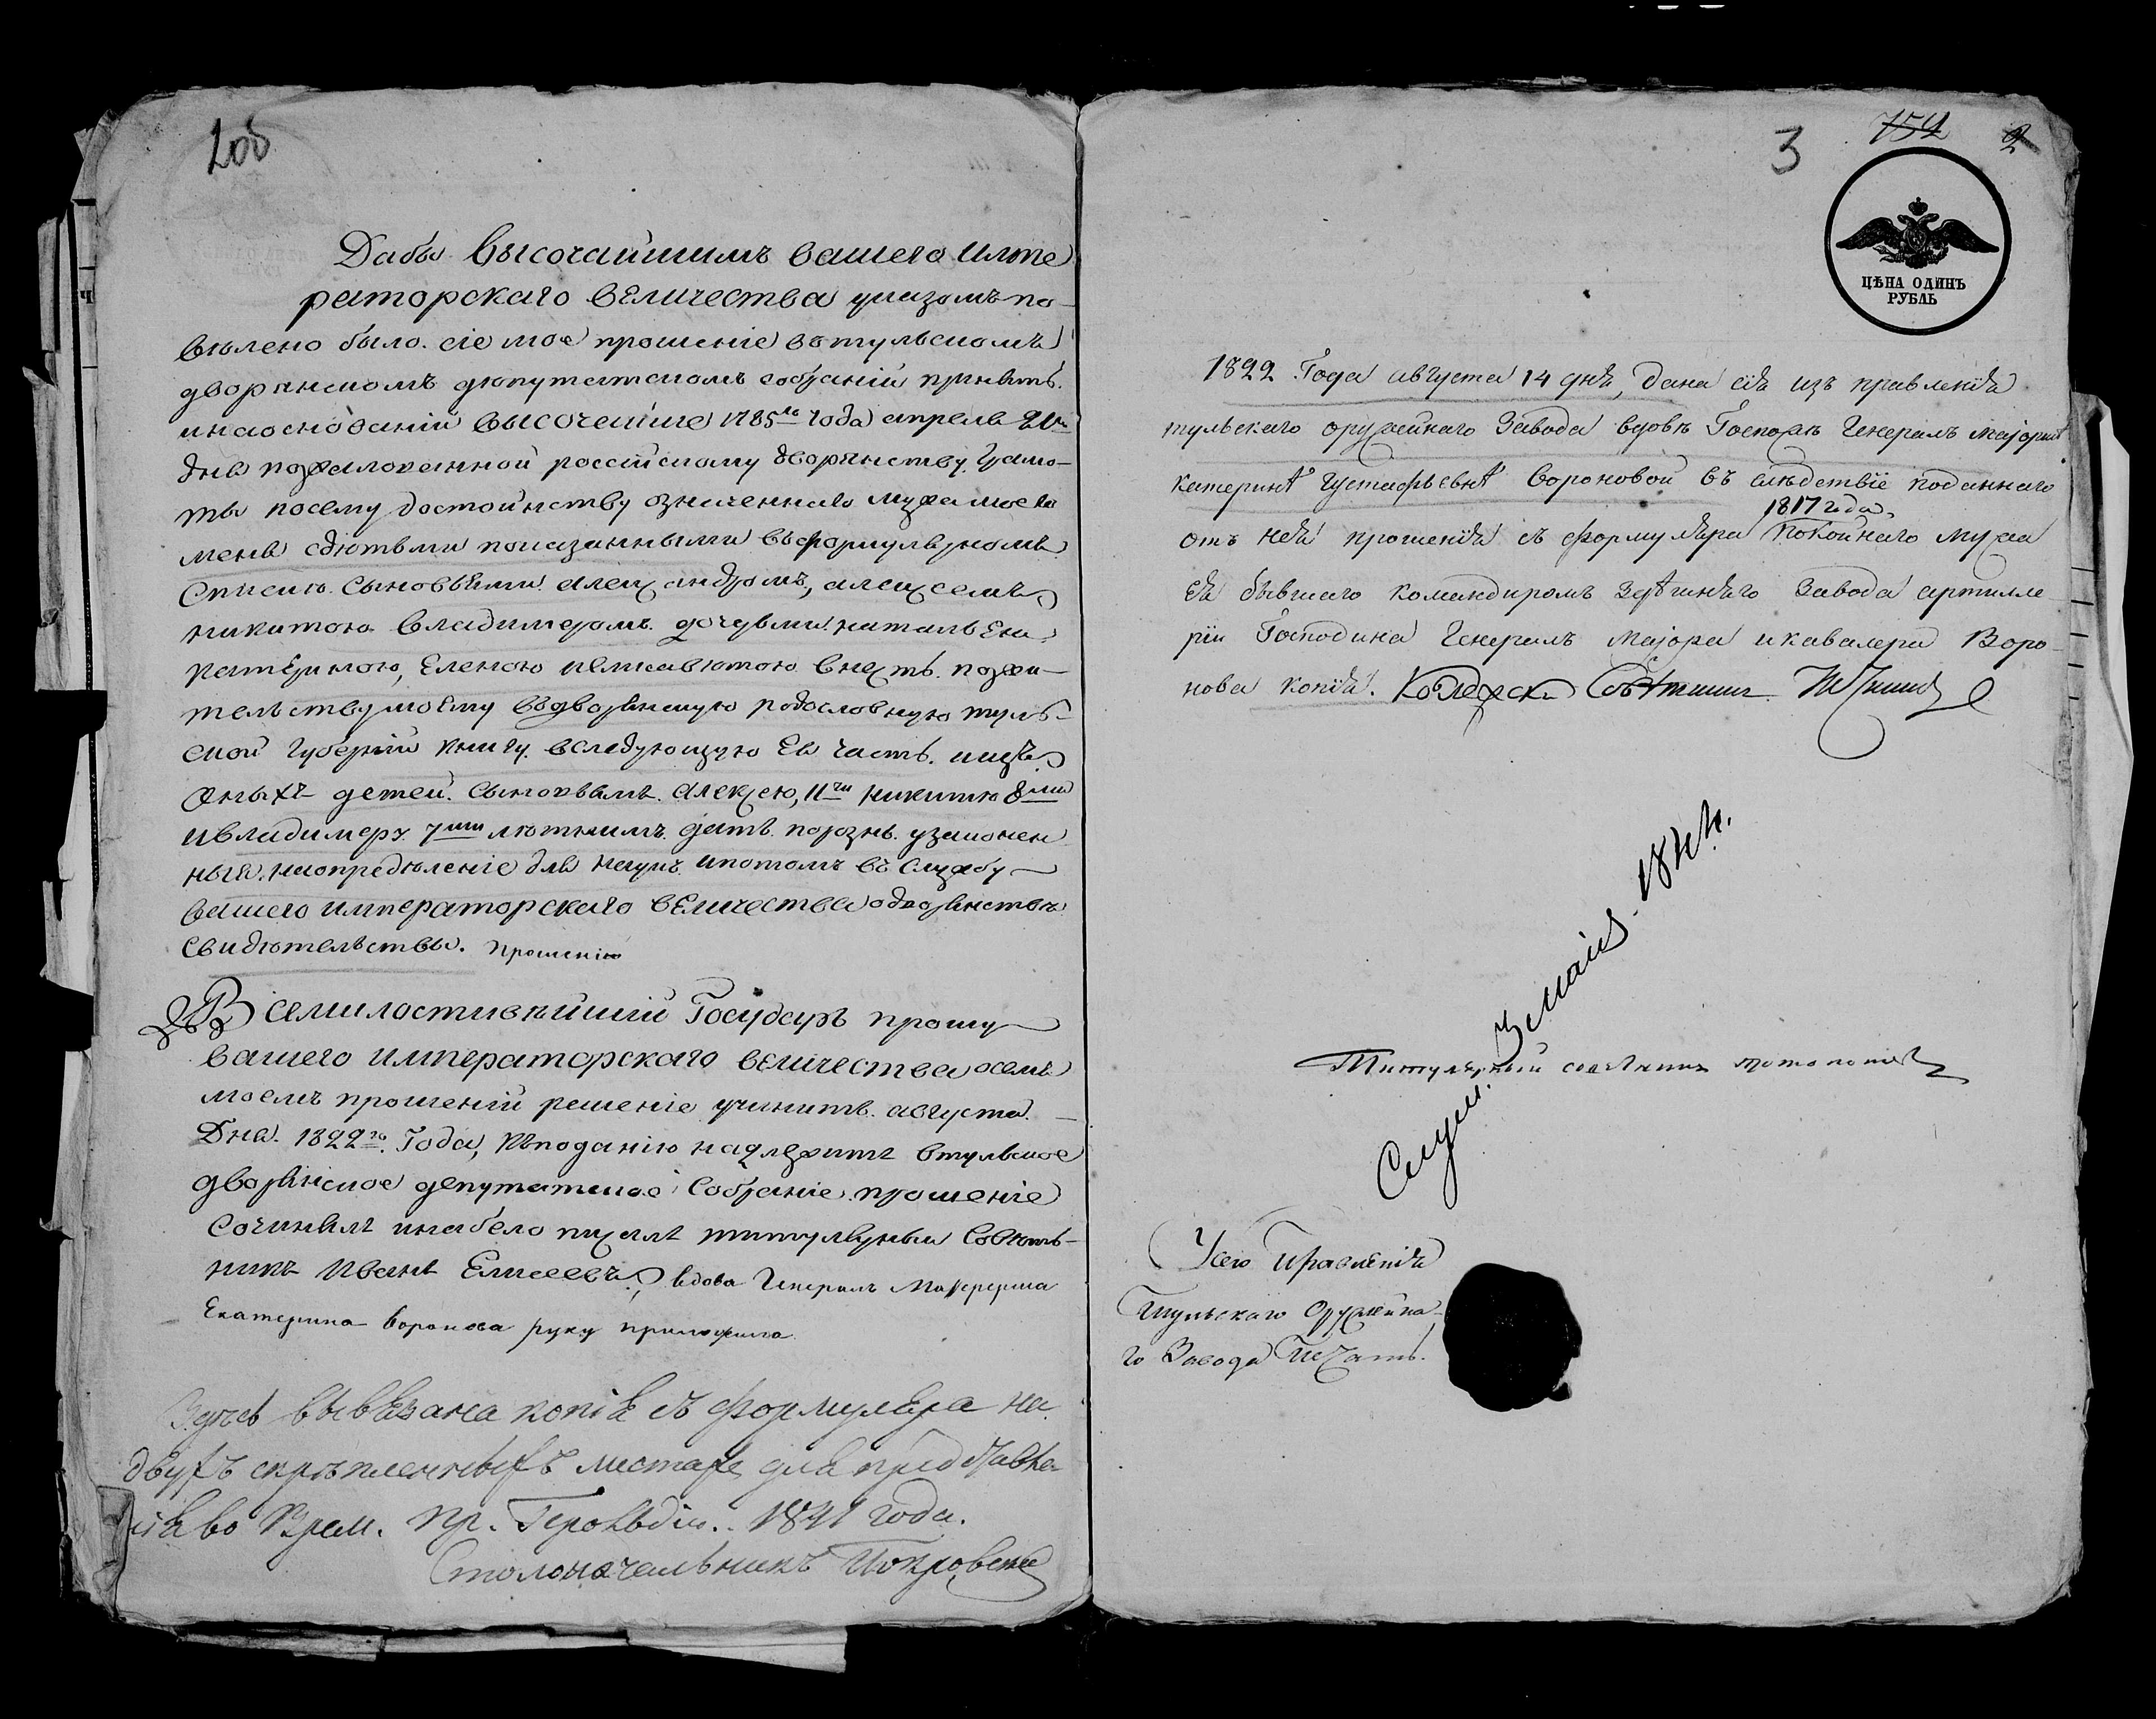 200
Дабы высочайшимъ вашего импе
раторскаго величества указомъ по-
вѣлено было. сіе мое прошеніе въ тульскомъ
дворянскомъ депутатскомъ собраніи принять.
и на основаніи высочайше 1785го года апреля 21го
дня пожалованной россійскому дворянству грамо-
ты по сему достоинству означеннаго мужа моего
меня с дѣтьми показанными въ формулярномъ
списке сыновьями александромъ, алексеемъ
никитою владимеромъ дочерьми натальею
катериною, еленою и елисаветою внесть. по жи-
тельству моему въ дворянскую родословную туль-
ской губерніи книгу. в следующую ея часть. и изъ
оныхъ детей. сыновьямъ. алексею, 11ти никитѣ 8ми
и владимеру 7ми лѣтнимъ дать порознь. узаконен
ныя. на определеніе для наукъ и потомъ въ службу
вашего императорскаго величества о дворянстве
свидетельствы. прошенію
Всемилостивѣйшій Государь прошу
вашего императорскаго величества о семъ
моемъ прошеніи решеніе учинить. августа
дня. 1822го. Года, къ поданію надлежитъ в тульское
дворянское депутатское собраніе прошеніе
сочинялъ и набело писалъ титулярный совѣт-
никъ Иванъ Елисеевъ, вдова Генералъ Маіорша
Екатерина Воронова руку приложила
Здѣсь вывязана копія съ формуляра на
двухъ скрѣпленныхъ листахъ для представле-
нія во Врем. Пр. Герольдіи.. 1841 года.
Столоначальникъ Покровскій
3 752 2
ЦѢНА ОДИНЪ
РУБЛЬ
1822 Года августа 14 дня, дана сія изъ правленія
тульскаго оружейнаго Завода вдовѣ Госпожѣ Генералъ Маіоршѣ
катеринѣ густафьевнѣ вороновой въ слѣдствіе поданнаго
1817 года,
отъ нея прошенія съ формуляра покойнаго мужа
ея бывшаго командиромъ здѣшняго Завода артилле
ріи Господина Генералъ Маіора и кавалера Воро
нова копія. Коллежскій Совѣтникъ
Слуш. 3 маія 1844.
Титулярный совѣтникъ
У сего Правленія
Тульскаго Оружейна
го Завода Печать.